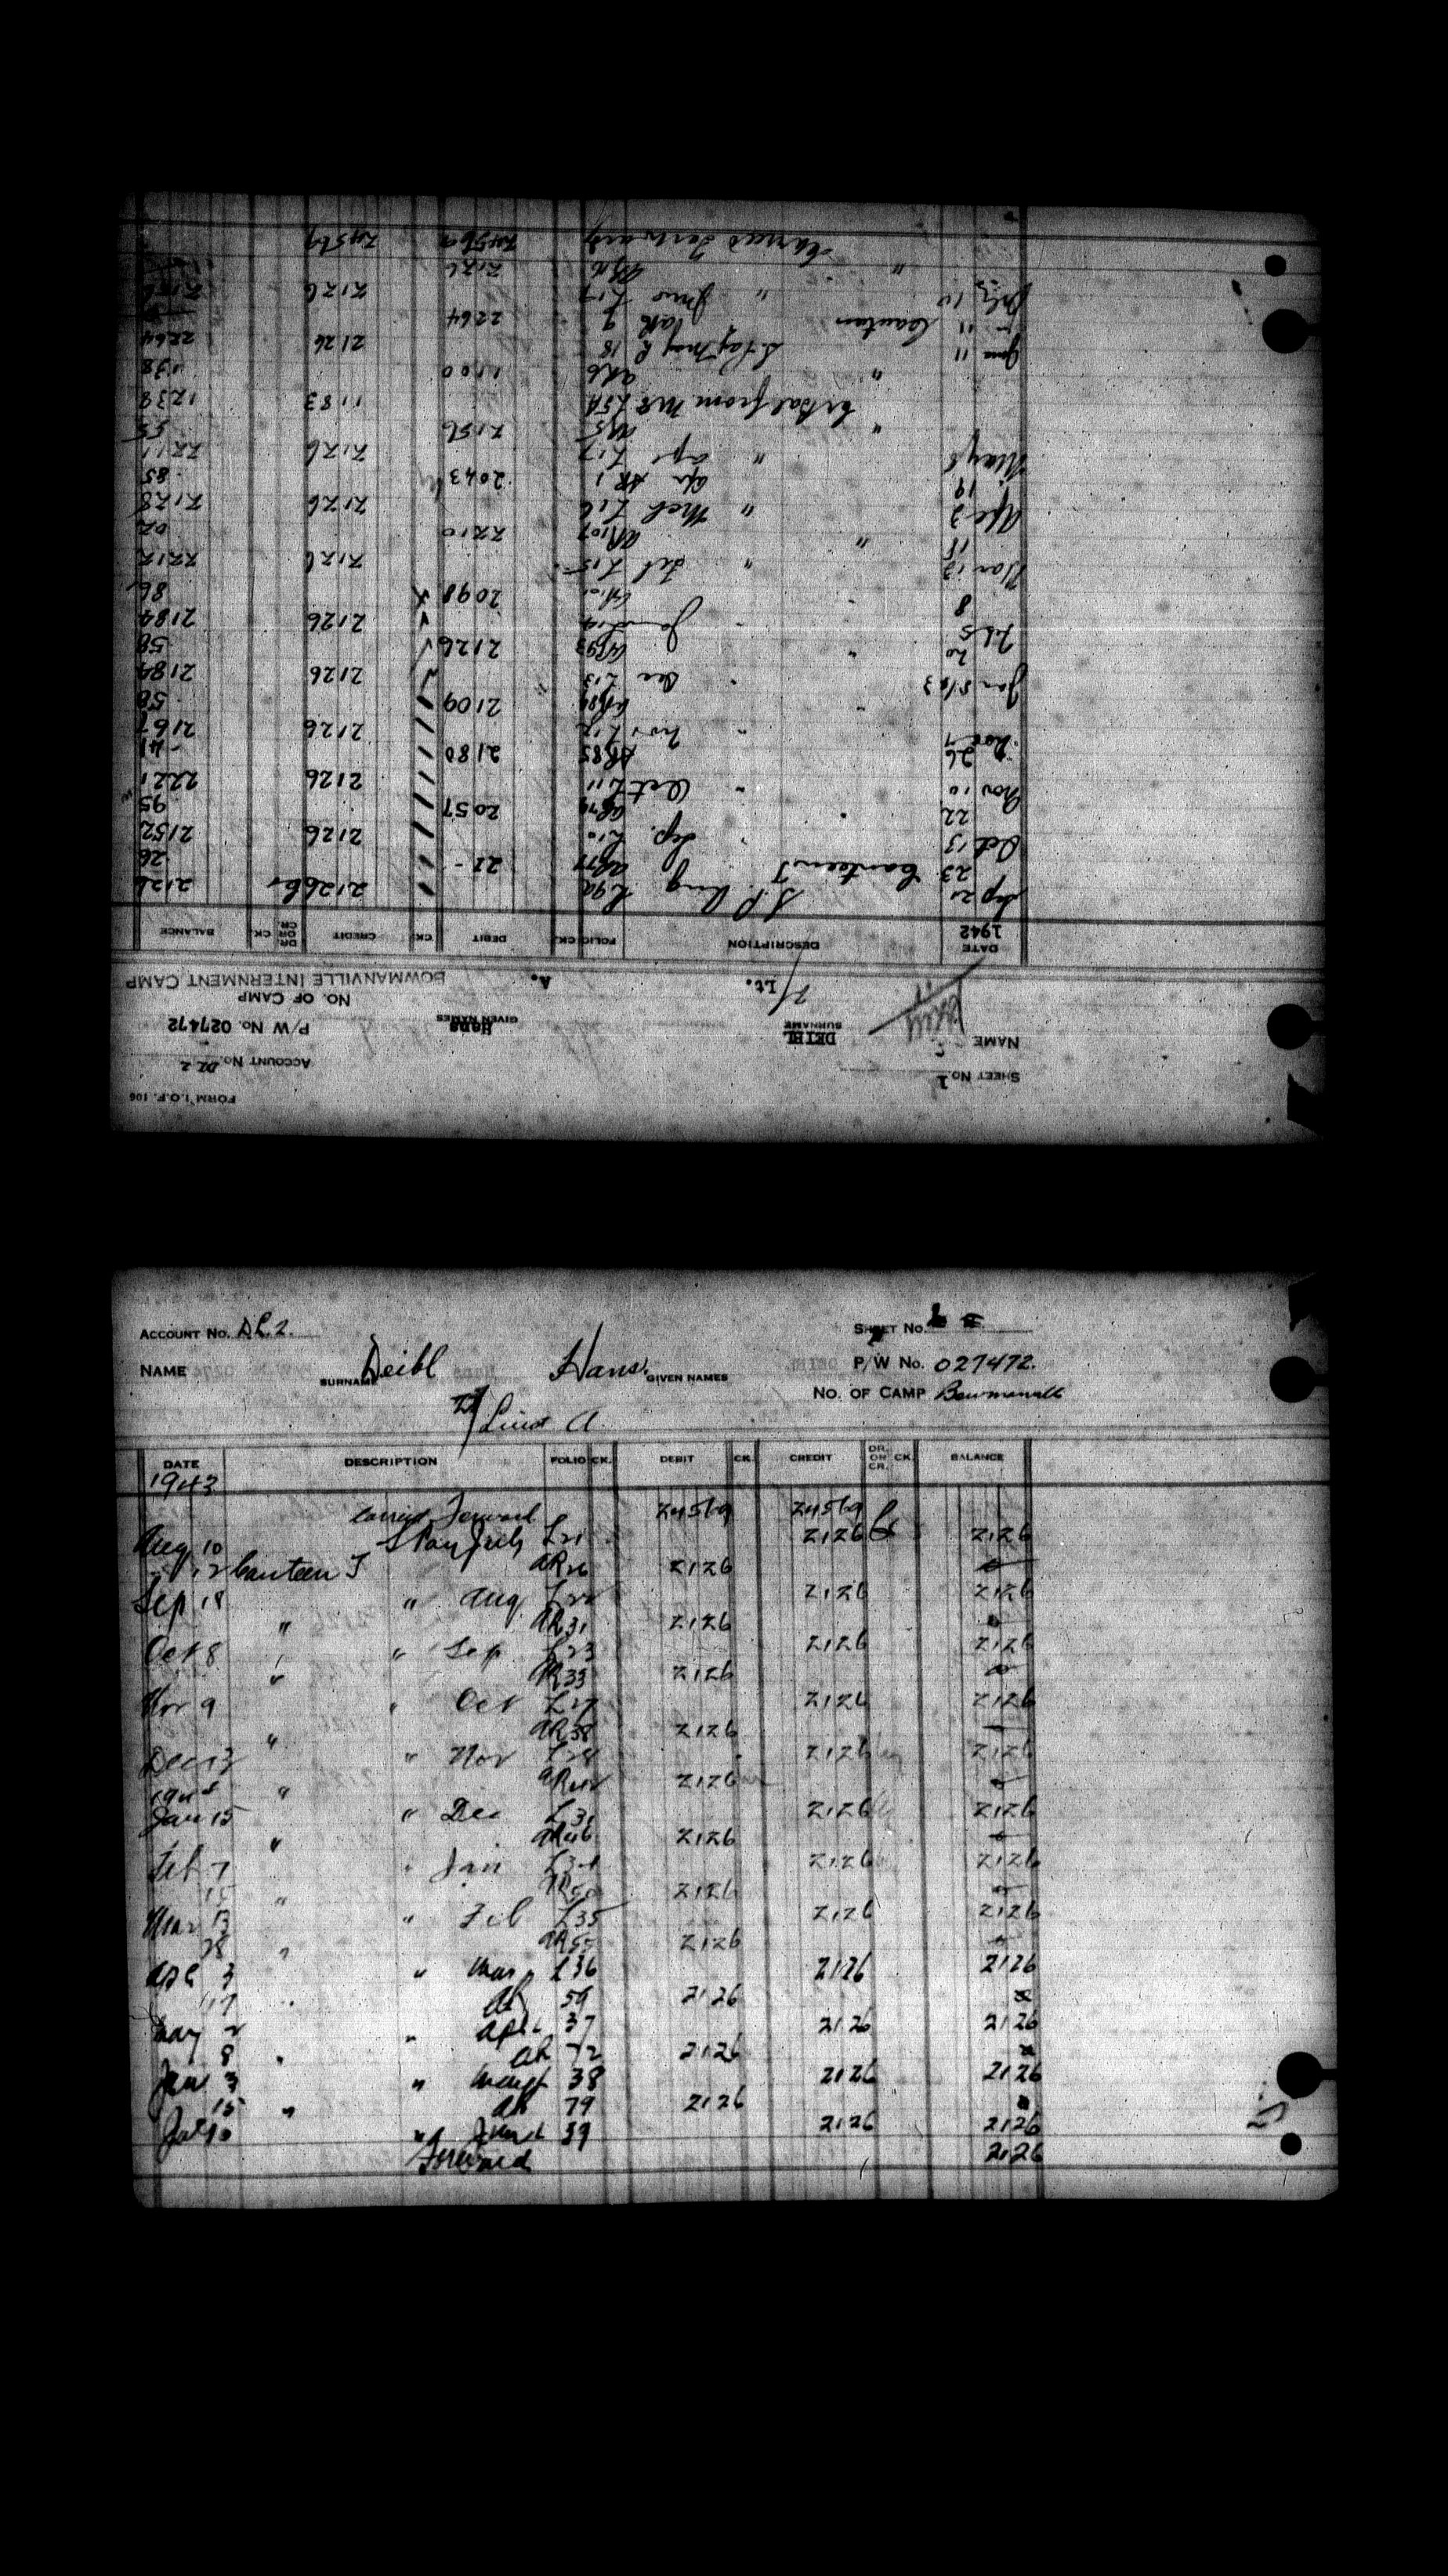 FORM I.O.F. 106
SHEET No. 1 ACCOUNT No. DL 2
NAME DEIBL Hans P/W No. 027472
SURNAME GIVEN NAMES
NO. OF CAMP
2/Lt. A. BOWMANVILLE INTERNMENT CAMP
DATE DESCRIPTION FOLIO CK. DEBIT CK. CREDIT DR. OR CR. CK. BALANCE
1942
Sep 21 S.P. Aug L9a 2126 Cr 2126
23 Canteen T AR77 22 - 26
Oct 13 " Sep. L10 2126 2152
22 " 2057 95
Nov 10 " Oct L11 2126 2221
26 AR85 2180 41
Dec 7 " Nov L12 2126 2167
" 2109 58
Jan 5/43 " Dec L13 2126 2184
20 " AR93 2126 58
Feb 5 " Jan L14 2126 2184
8 " 2098 86
Mar 13 " Feb L15 2126 2212
18 " AR107 2210 02
Apr 3 " Mch L16 2126 2128
19 Apr AR 1 2043 85
May 8 " Apr L17 2126 2211
" AR5 2156 55
Cr Bal from M.S. L5A 1183 1238
" AR6 1100 138
June 11 S. Pay May L 18 2126 2264
" 11 Canteen 2264
July 10 " June L19 2126 2126
" 2126
Carried Forward 24569 24569
ACCOUNT No. DL.2. SHEET No. 2
NAME Deibl Hans P/W No. 027472.
SURNAME GIVEN NAMES
NO. OF CAMP Bowmanville
2/Lieut A.
DATE DESCRIPTION FOLIO CK. DEBIT CK. CREDIT DR. OR CR. CK. BALANCE
1943
Carried Forward 24569 24569
Aug 10 S Pay July L21 2126 Cr 2126
" 12 Canteen T AR26 2126
Sep 18 " Aug L22 2126 2126
" AR31 2126
Oct 8 " Sep L23 2126 2126
" AR33 2126
Nov 9 " Oct L27 2126 2126
" AR38 2126
Dec 13 " Nov L28 2126 2126
" AR42 2126
Jan 15 " Dec L31 2126 2126
" AR46 2126
Feb 7 " Jan L34 2126 2126
15 " AR50 2126
Mar 13 " Feb L35 2126 2126
28 " AR55 2126
Apl 3 " Mar L36 2126 2126
17 " AR 59 2126
May 2 " Apl L 37 2126 2126
8 " AR 72 2126
Jun 3 " May L 38 2126 2126
15 " AR 79 2126
Jul 10 " June L 39 2126 2126
Forward 2126